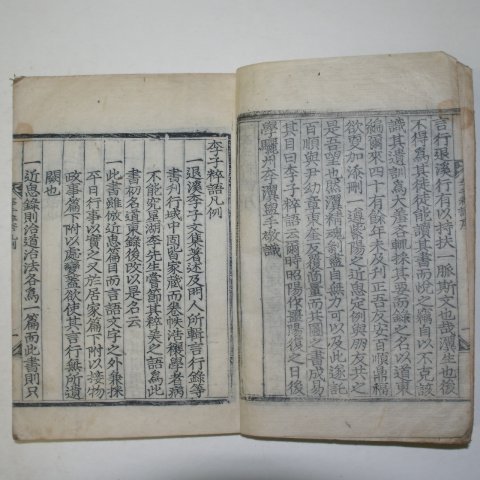 言行退溪行有以持扶一脈斯文也哉瀷生也後
不得爲其徒徒能讀其書而悅之竊自以不克該
識其遺訓爲大羞吝輒採其要而錄之名以道東
編爾來四十有餘年未及刊正吾友安百順鼎福
欲更加添刪一遵紫陽近思定例與朋友共之
是吾望也然瀷精魂剝盡自無力可以及此遂託
百順與尹幼章東奎反覆商量而共圖之書成易
其目曰李子粹語云爾時昭陽作噩陽復之日後
學驪州李瀷盥手敬識
李子粹語凡例
一退溪李子文集著述及門人所輯言行錄等
書刊行域中固皆家藏而卷帙浩穰學者病
不能究星湖李先生嘗節其粹美之語爲此
書初名道東錄後改以是名云
一此書雖倣近思篇目而言語文字之外兼採
平日行事以實之又於居家篇下附以接物
政事篇下附以處變蓋欲使其言行無所遺
闕也
一近思錄則治道治法各爲一篇而此書則只